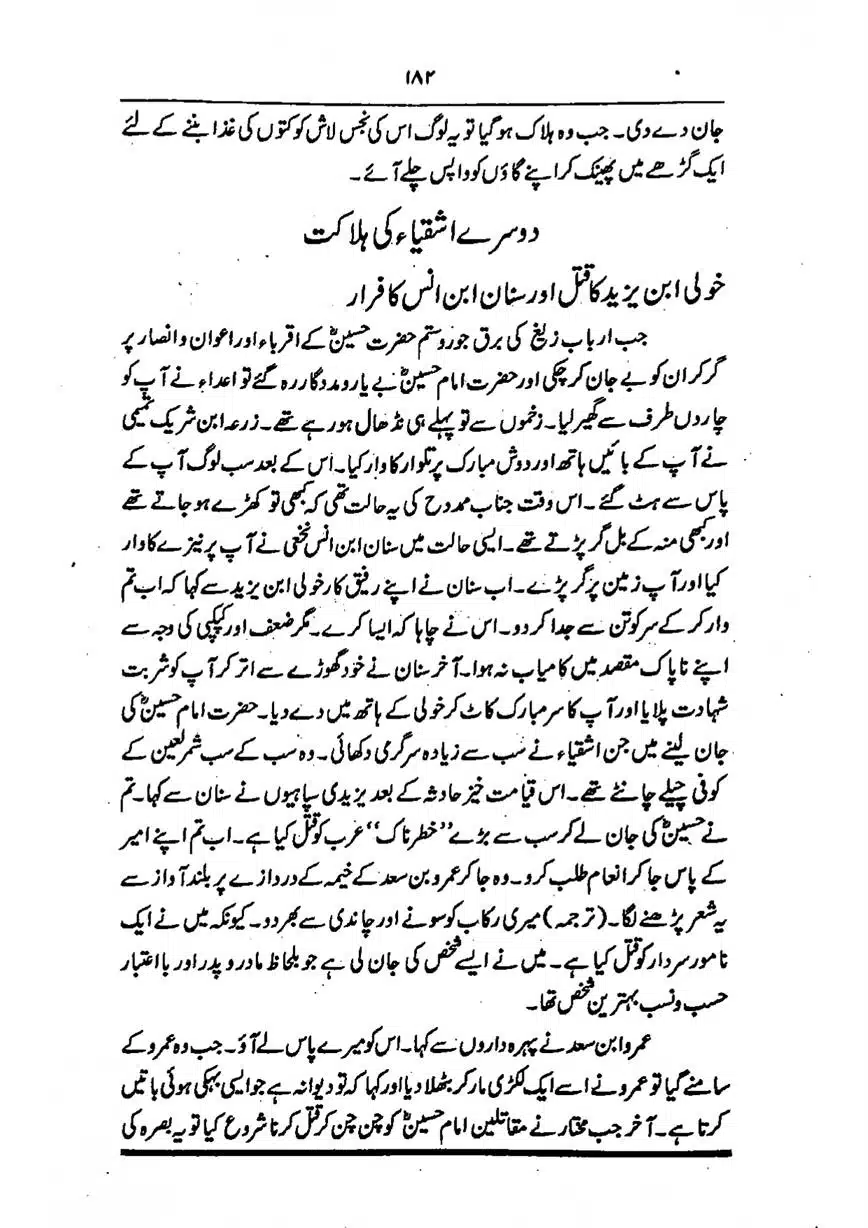 ۱۸۲
جان دے دی۔ جب وہ ہلاک ہو گیا تو یہ لوگ اس کی نجس لاش کو کتوں کی غذا بننے کے لئے
ایک گڑھے میں پھینک کر اپنے گاؤں کو واپس چلے آئے۔
دوسرے اشقیاء کی ہلاکت
خولی ابن یزید کا قتل اور سنان ابن انس کا فرار
جب ارباب زیغ کی برق جور و ستم حضرت حسینؓ کے اقرباء اور اعوان و انصار پر
گر کر ان کو بے جان کر چکی اور حضرت امام حسینؓ بے یار و مددگار رہ گئے تو اعداء نے آپ کو
چاروں طرف سے گھیر لیا۔ زخموں سے تو پہلے ہی نڈھال ہو رہے تھے۔ زرعہ ابن شریک تمیمی
نے آپ کے بائیں ہاتھ اور دوش مبارک پر تلوار کا وار کیا۔ اس کے بعد سب لوگ آپ کے
پاس سے ہٹ گئے۔ اس وقت جناب ممدوح کی یہ حالت تھی کہ کبھی تو کھڑے ہو جاتے تھے
اور کبھی منہ کے بل گر پڑتے تھے۔ ایسی حالت میں سنان ابن انس نخعی نے آپ پر نیزے کا وار
کیا اور آپ زمین پر گر پڑے۔ اب سنان نے اپنے رفیق کار خولی ابن یزید سے کہا کہ اب تم
وار کر کے سر کو تن سے جدا کر دو۔ اس نے چاہا کہ ایسا کرے۔ مگر ضعف اور کپکپی کی وجہ سے
اپنے ناپاک مقصد میں کامیاب نہ ہوا۔ آخر سنان نے خود گھوڑے سے اتر کر آپ کو شربت
شہادت پلایا اور آپ کا سر مبارک کاٹ کر خولی کے ہاتھ میں دے دیا۔ حضرت امام حسینؓ کی
جان لینے میں جن اشقیاء نے سب سے زیادہ سرگرمی دکھائی۔ وہ سب کے سب شمر لعین کے
کوفی چیلے چانٹے تھے۔ اس قیامت خیز حادثہ کے بعد یزیدی سپاہیوں نے سنان سے کہا۔ تم
نے حسینؓ کی جان لے کر سب سے بڑے ”خطرناک“ عرب کو قتل کیا ہے۔ اب تم اپنے امیر
کے پاس جا کر انعام طلب کرو۔ وہ جا کر عمرو بن سعد کے خیمہ کے دروازے پر بلند آواز سے
یہ شعر پڑھنے لگا۔ (ترجمہ) میری رکاب کو سونے اور چاندی سے بھر دو۔ کیونکہ میں نے ایک
نامور سردار کو قتل کیا ہے۔ میں نے ایسے شخص کی جان لی ہے جو بلحاظ مادر و پدر اور با اعتبار
حسب و نسب بہترین شخص تھا۔
عمرو ابن سعد نے پہرہ داروں سے کہا۔ اس کو میرے پاس لے آؤ۔ جب وہ عمرو کے
سامنے گیا تو عمرو نے اسے ایک لکڑی مار کر بٹھلا دیا اور کہا کہ تو دیوانہ ہے جو ایسی بہکی ہوئی باتیں
کرتا ہے۔ آخر جب مختار نے مقاتلین امام حسینؓ کو چن چن کر قتل کرنا شروع کیا تو یہ بصرہ کی